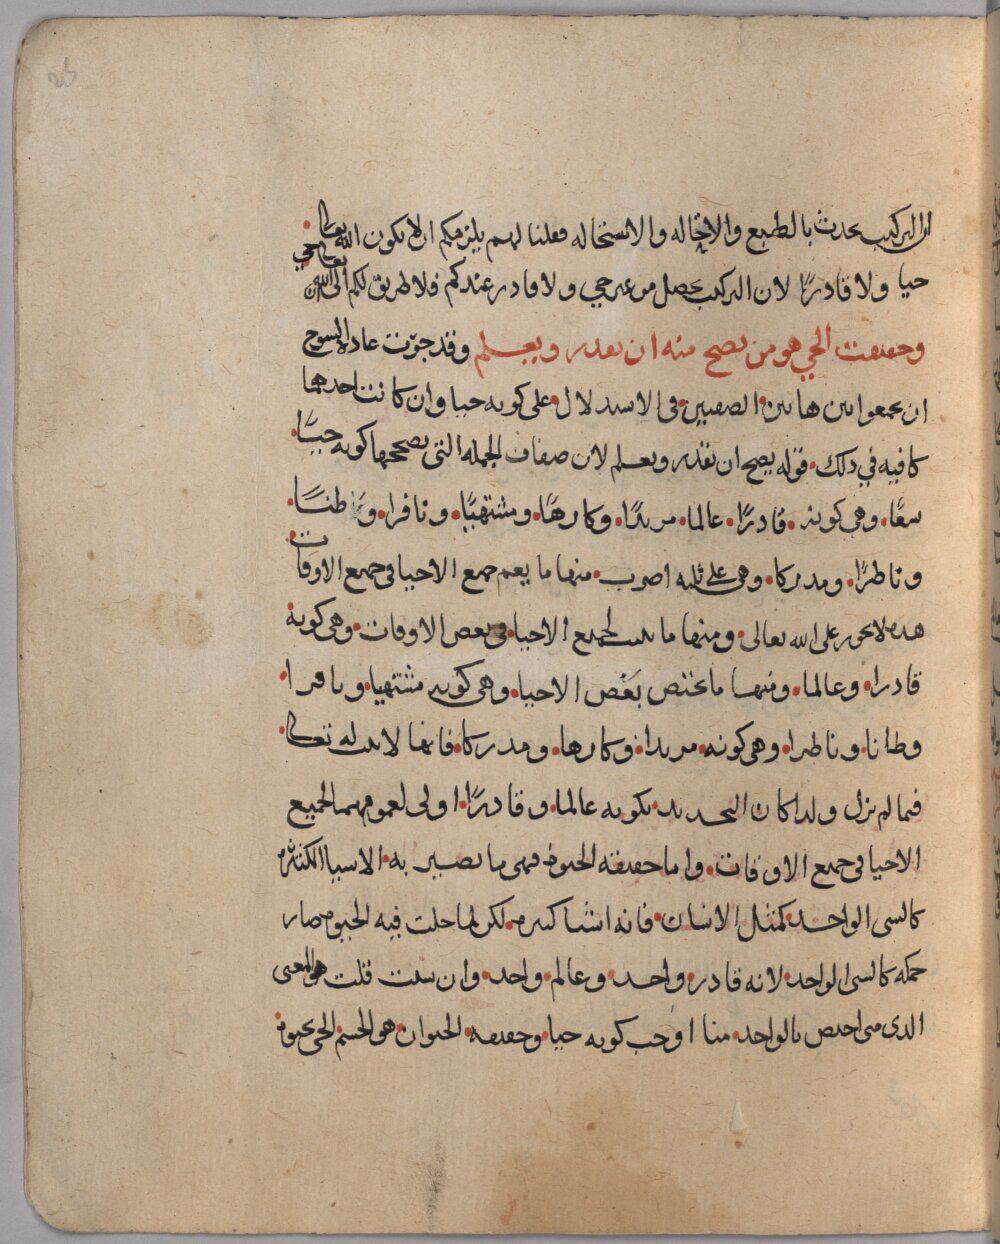 ان التركيب يحدث بالطبع والاحاله والاستحاله فقلنا لهم يلزمكم ان لا يكون الله تعالى
حيا ولا قادرًا لان التركيب يحصل من غير حي ولا قادر عندكم فلا طريق لكم الى ان الله تعالى حي
وحقيقت الحي هو من يصح منه ان يقدر ويعلم وقد جرت عادة الشيوخ
ان يجمعوا بين هاتين الصفتين في الاستدلال على كونه حيا وان كانت احدهما
كافيه في ذلك قوله يصح ان يقدر ويعلم لان صفات الجمله التي يصححها كونه حيًا
وهي كونه قادرًا عالما مريدًا وكارهًا ومشتهيًا ونافرا وظانًا
وناظرًا ومدركا وهي على ثلثه اضرب منها ما يعم جميع الاحيا في جميع الاوقات
هذه لا يجوز على الله تعالى ومنها ما يثبت لجميع الاحيا في بعض الاوقات وهي كونه
قادرا وعالما ومنها ما يختص بعض الاحيا وهي كونه مشتهيا ونافرا
وظانا وناظرا وهي كونه مريدا وكارها ومدركا فانها لا يثبت له تعالى
فيما لم يزل ولذا كان التحديد بكونه عالما وقادرًا اولى لعمومهما لجميع
الاحيا في جميع الاوقات واما حقيقه الحيوة فهي ما تصير به الاشيا الكثيره
كالشي الواحد كمثل الانسان فانه اشيا كثيره لكن لما حلت فيه الحيوه صار
حكمه كالشي الواحد لانه قادر واحد وعالم واحد وان شئت قلت هو المعنى
الذي متى اختص بالواحد منا اوجب كونه حيا وحقيقه الحيوان هو الجسم الحي بحيوة